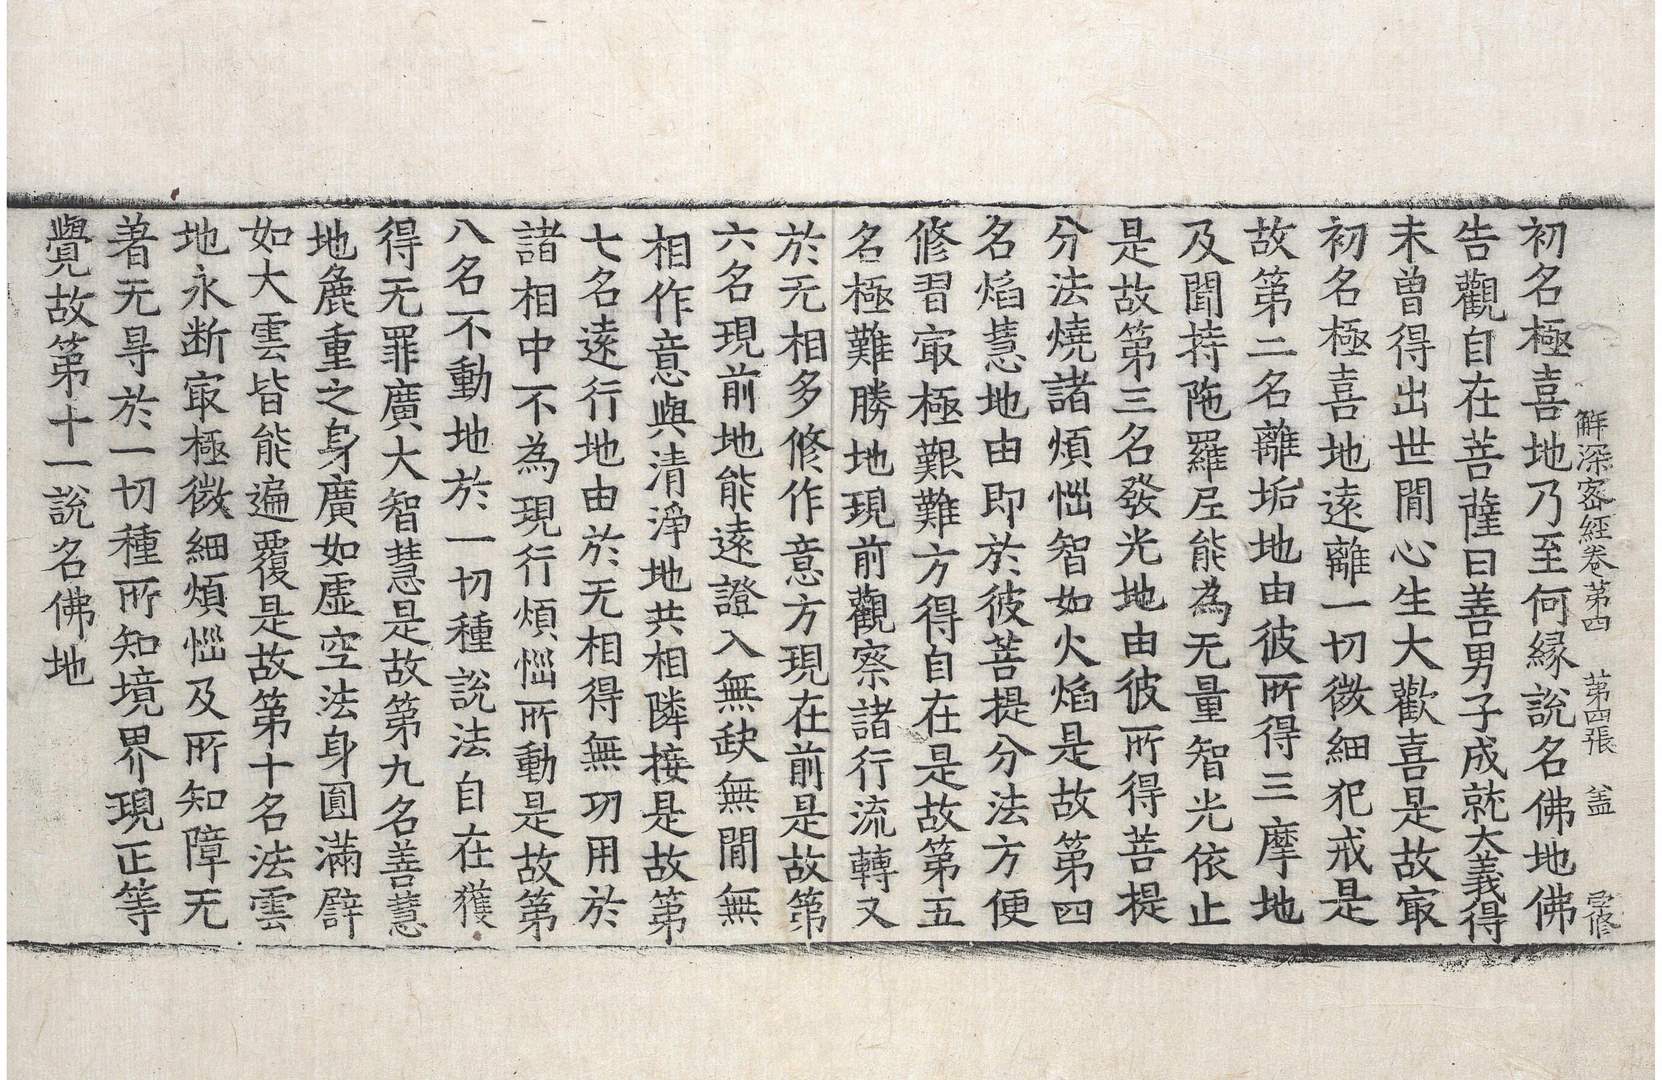 解深密經卷第四 第四張 盖
初名極喜地乃至何縁說名佛地佛
告觀自在菩薩曰善男子成就大義得
未曾得出世閒心生大歡喜是故㝡
初名極喜地遠離一切微細犯戒是
故第二名離垢地由彼所得三摩地
及聞持陁羅尼能為无量智光依止
是故第三名發光地由彼所得菩提
分法燒諸煩惱智如火焰是故第四
名焰慧地由即於彼菩提分法方便
修習㝡極艱難方得自在是故第五
名極難勝地現前觀察諸行流轉又
於无相多修作意方現在前是故第
六名現前地能遠證入無缺無閒無
相作意與清淨地共相隣接是故第
七名遠行地由於无相得無功用於
諸相中不為現行煩惱所動是故第
八名不動地於一切種說法自在獲
得无罪廣大智慧是故第九名善慧
地麁重之身廣如虛空法身圓滿譬
如大雲皆能遍覆是故第十名法雲
地永断㝡極微細煩惱及所知障无
著无㝵於一切種所知境界現正等
覺故第十一說名佛地